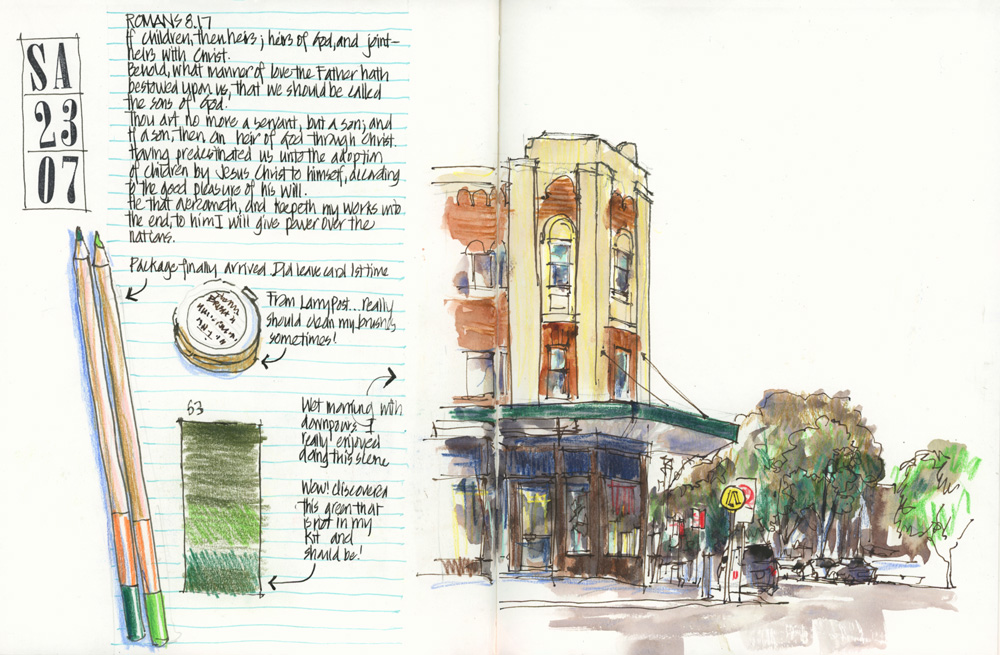 SA
23
07
ROMANS 8.17
If children, then heirs; heirs of God, and joint-
heirs with Christ.
Behold, what manner of love the Father hath
bestowed upon us, that we should be called
the sons of God.
Thou art no more a servant, but a son; and
if a son, then an heir of God through Christ.
Having predestinated us unto the adoption
of children by Jesus Christ to himself, according
to the good pleasure of his will.
He that overcometh, and keepeth my works unto
the end, to him I will give power over the
nations.
Package finally arrived Did leave card 1st time
From Larry Post... really
should clean my brushes
sometimes!
53
Wet morning with
downpours I
really enjoyed
doing this scene
Wow! discovered
this green that
is not in my
kit and
should be!